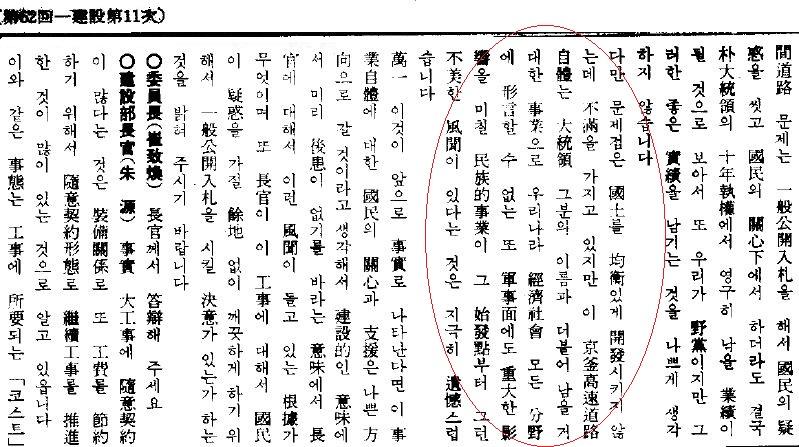 (第62回—建設第11次)
間道路 문제는 一般公開入札을 해서 國民의 疑
惑을 씻고 國民의 關心下에서 하더라도 결국
朴大統領의 十年執權에서 영구히 남을 業績이
될 것으로 보아서 또 우리가 野黨이지만 그
러한 좋은 實績을 남기는 것을 나쁘게 생각
하지 않습니다
다만 문제점은 國土를 均衡있게 開發시키지 않
는데 不滿을 가지고 있지만 이 京釜高速道路
自體는 大統領 그분의 이름과 더불어 남을 거
대한 事業으로 우리나라 經濟社會 모든 分野
에 形言할 수 없는 또 軍事面에도 重大한 影
響을 미칠 民族的事業이 그 始發點부터 그런
不美한 風聞이 있다는 것은 지극히 遺憾스럽
습니다
萬一 이것이 앞으로 事實로 나타난다면 이 事
業自體에 대한 國民의 關心과 支援은 나쁜 方
向으로 갈 것이라고 생각해서 建設的인 意味에
서 미리 後患이 없기를 바라는 意味에서 長
官에 대해서 이런 風聞이 돌고 있는 根據가
무엇이며 또 長官이 이 工事에 대해서 國民
이 疑惑을 가질 餘地 없이 깨끗하게 하기 위
해서 一般公開入札을 시킬 決意가 있는가 하는
것을 밝혀 주시기 바랍니다
○委員長(崔致煥) 長官께서 答辯해 주세요
○建設部長官(朱 源) 事實 大工事에 隨意契約
이 많다는 것은 裝備關係로 또 工費를 節約
하기 위해서 隨意契約形態로 繼續工事를 推進
한 것이 많이 있는 것으로 알고 있읍니다
이와 같은 事態는 工事에 所要되는 「코스트」